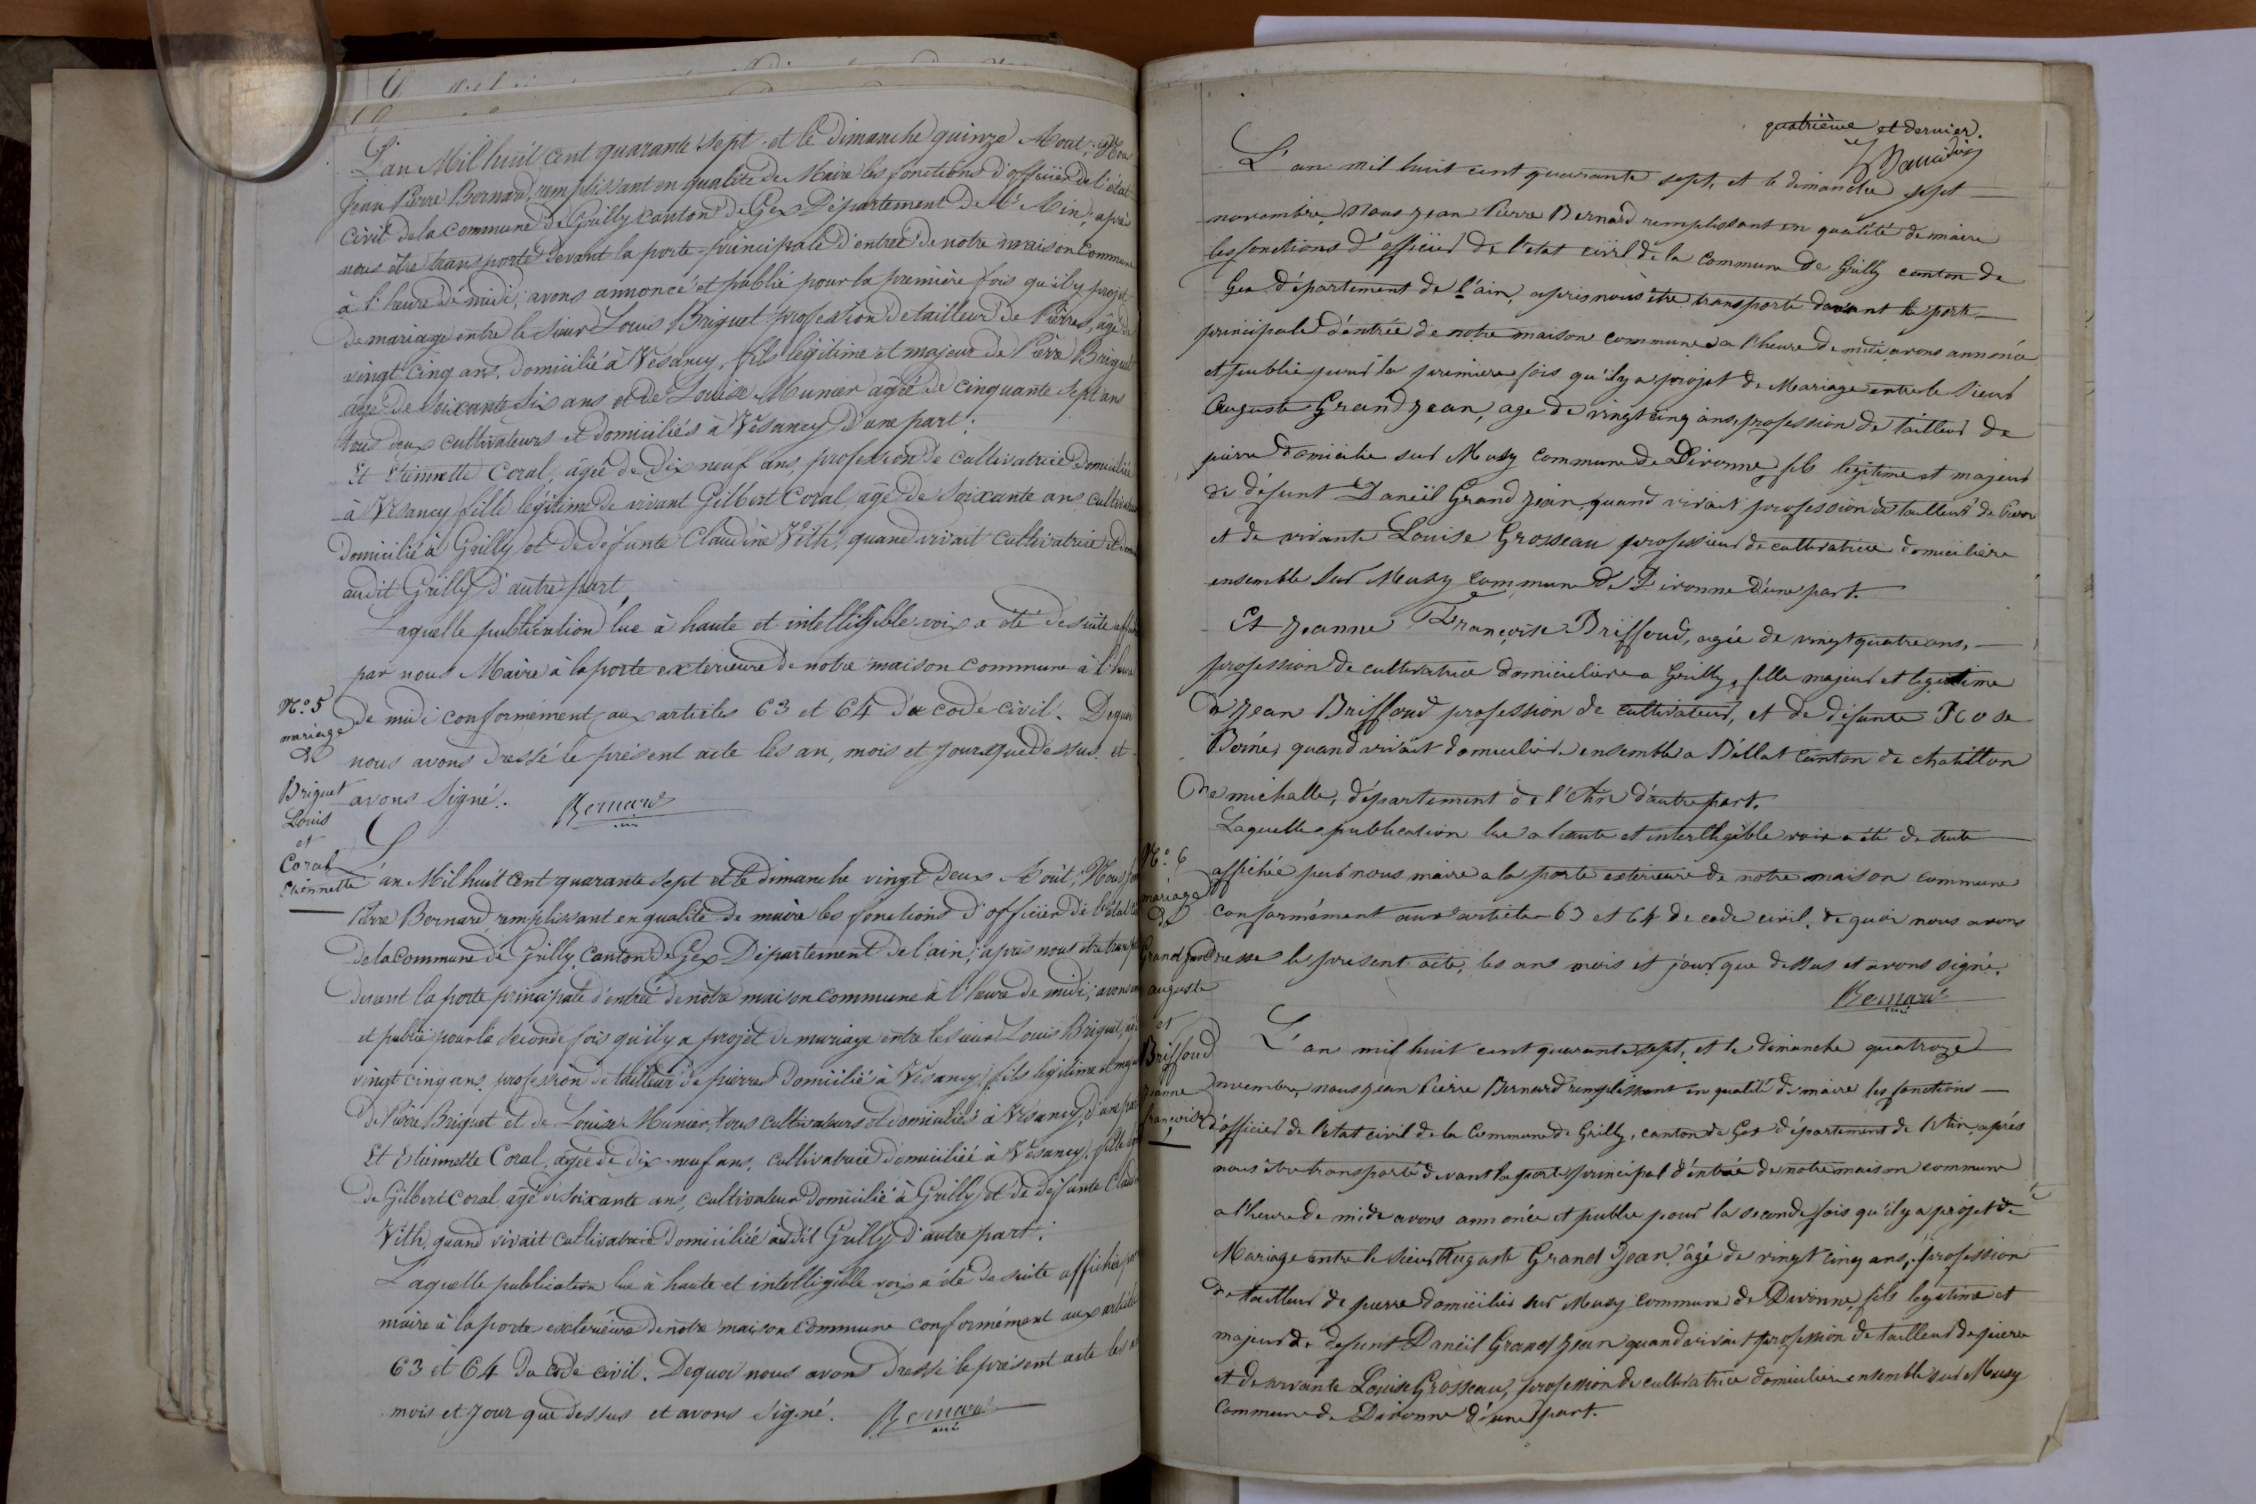 L'an Mil huit cent quarante sept et le dimanche quinze Aout, Nous
Jean Pierre Bernard, remplissant en qualité de Maire les fonctions d'officier de l'état
civil de la commune de Grilly canton de Gex Département de l'Ain, après
nous être transporté devant la porte principale d'entrée de notre maison commune
à l'heure de midi, avons annoncé et publié pour la première fois qu'il y projet
de mariage entre le sieur Louis Briguet profession de tailleur de Pierres, âgé de
vingt cinq ans, domicilié à Vésancy, fils légitime et majeur de Pierre Briguet
âgé de soixante six ans et de Louise Munier âgée de cinquante sept ans
tous deux cultivateurs et domiciliés à Vésancy d'une part.
Et Etiennette Coral, âgée de dix neuf ans, profession de cultivatrice domiciliée
à Vésancy fille légitime de vivant Gilbert Coral, âgé de soixante ans, cultivateur
domicilié à Grilly et de défunte Claudine Vith, quand vivait cultivatrice et
audit Grilly d'autre part,
Laquelle publication lue à haute et intelligible voix a été de suite
par nous Maire à la porte extérieure de notre maison commune à l'heure
de midi conformément aux articles 63 et 64 du code civil. De quoi
nous avons dressé le présent acte les an, mois et jours que dessus et
avons signé. Bernard
N° 5
mariage
de
Briguet
Louis
et
Coral
Etiennette
L'an Mil huit cent quarante sept et le dimanche vingt deux Août, Nous
Pierre Bernard, remplissant en qualité de maire les fonctions d'officier de l'état
de la commune de Grilly, canton de Gex Département de l'ain, après nous être
devant la porte principale d'entrée de notre maison commune à l'heure de midi, avons
et publié pour la seconde fois qu'il y a projet de mariage entre le sieur Louis Briguet,
vingt cinq ans, profession de tailleur de pierres domicilié à Vésancy, fils légitime et
de Pierre Briguet et de Louise Munier, tous cultivateurs et domiciliés à Vésancy, d'une part
Et Etiennette Coral, âgée de dix neuf ans, cultivatrice domiciliée à Vésancy, fille
de Gilbert Coral âgé de soixante ans, cultivateur domicilié à Grilly et de défunte
Vith, quand vivait cultivatrice domiciliée audit Grilly d'autre part.
Laquelle publication lue à haute et intelligible voix a été de suite affichée
maire à la porte extérieure de notre maison commune conformément aux articles
63 et 64 du code civil. De quoi nous avons dressé le présent acte les
mois et jour que dessus et avons signé. Bernard
quatrième et dernier.
L'an mil huit cent quarante sept, et le dimanche sept
novembre, Nous Jean Pierre Bernard remplissant en qualité de maire
les fonctions d'officier de l'etat civil de la commune de Grilly canton de
Gex département de l'ain, apris nous être transporté devant la porte
principale d'entrée de notre maison commune a l'heure de midi avons annoncé
et publié pour la premiere fois qu'il y a projet de Mariage entre le sieur
Auguste Grand Jean, age de vingt cinq ans, profession de tailleur de
pierre domicilie sur Musy commune de Divonne, fils legitime et majeur
de défunt Daneiïl Grand Jean, quand vivait profession de tailleur de Pierre
et de vivante Louise Grosseau profession de cultivatrice domiciliere
ensemble sur Musy commune de Divonne d'une part.
Et Jeanne Françoise Briffoud, agée de vingt quatre ans,
profession de cultivatrice domiciliere a Grilly, fille majeur et legitime
de Jean Briffoud profession de cultivateur, et de défunte Rose
Borné, quand vivait domicilier ensemble a Billat canton de chatillon
de michalle, département de l'Ain d'autre part.
Laquelle publication lue a haute et intelligible voix a été de suite
affichée par nous maire a la porte exterieure de notre maison commune
conformément aux articles 63 et 64 de code civil, de quoi nous avons
dresse le present acte, les ans mois et jour que dessus et avons signé.
Bernard
N° 6
mariage
de
Grand Jean
auguste
et
Briffoud
Jeanne
françoise
L'an mil huit cent quarante sept, et le dimanche quatroze
novembre, nous Jean Pierre Bernard remplissant en qualité de maire les fonctions
d'officier de l'etat civil de la Commune de Grilly, canton de Gex département de l'Ain, après
nous être transporté devant la porte principal d'entrée de notre maison commune
a l'heure de midi avons annoncée et publie pour la seconde fois qu'il y a projet de
Mariage entre le sieur Auguste Grand Jean, âgé de vingt cinq ans, profession
de tailleur de pierre domicilier sur Musy commune de Divonne, fils legitime et
majeur de defunt Daneiïl Grand Jean quand vivait profession de tailleur de pierre
et de vivante Louise Grosseau, profession de cultivatrice domiciliere ensemble sur Musy
Commune de Divonne d'une part.